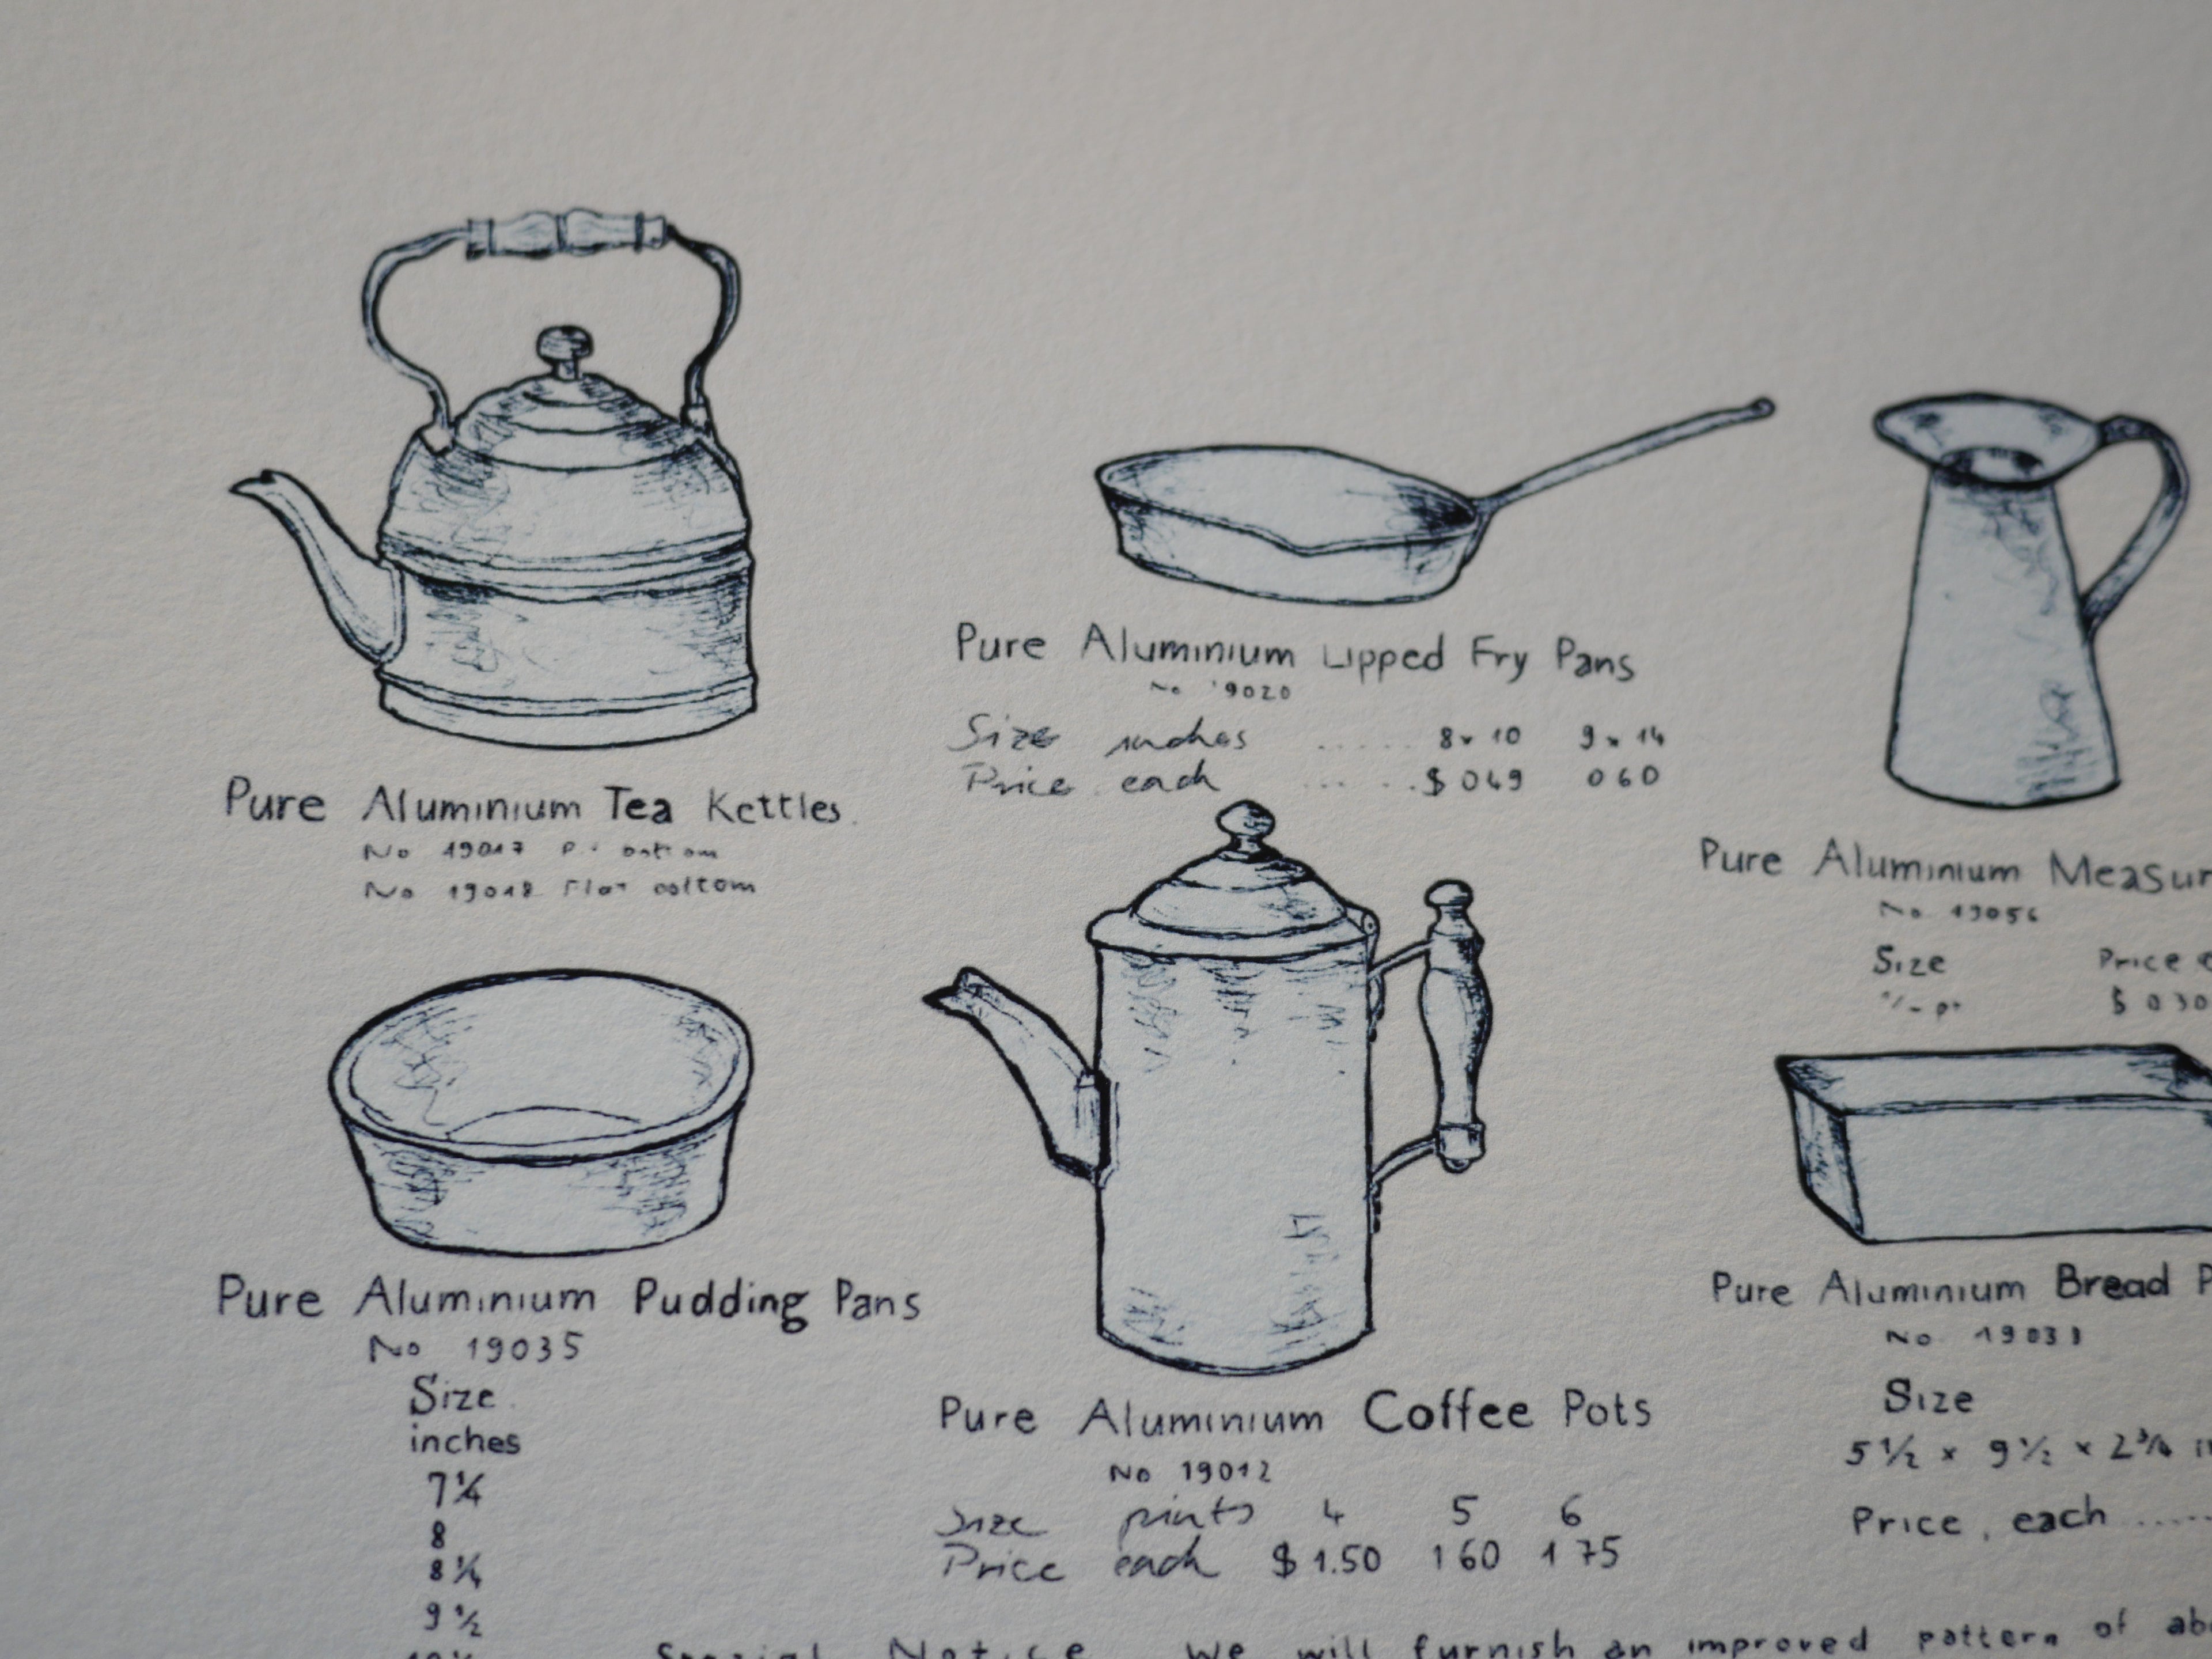 Pure Aluminium Tea Kettles
No 19017 bottom
No 19018 Flat bottom
Pure Aluminium Lipped Fry Pans
No 19020
Size inches ...... 8 x 10 9 x 14
Price each ...... $ 0 49 0 60
Pure Aluminium Measur
No 19056
Size Price e
$ 0 30
Pure Aluminium Pudding Pans
No 19035
Size
inches
7 1/4
8
8 1/4
9 1/2
Pure Aluminium Coffee Pots
No 19012
Size pints 4 5 6
Price each $ 1.50 1 60 1 75
Pure Aluminium Bread P
No 19033
Size
5 1/2 x 9 1/2 x 2 3/4 in
Price, each .....
Special Notice We will furnish an improved pattern of abo